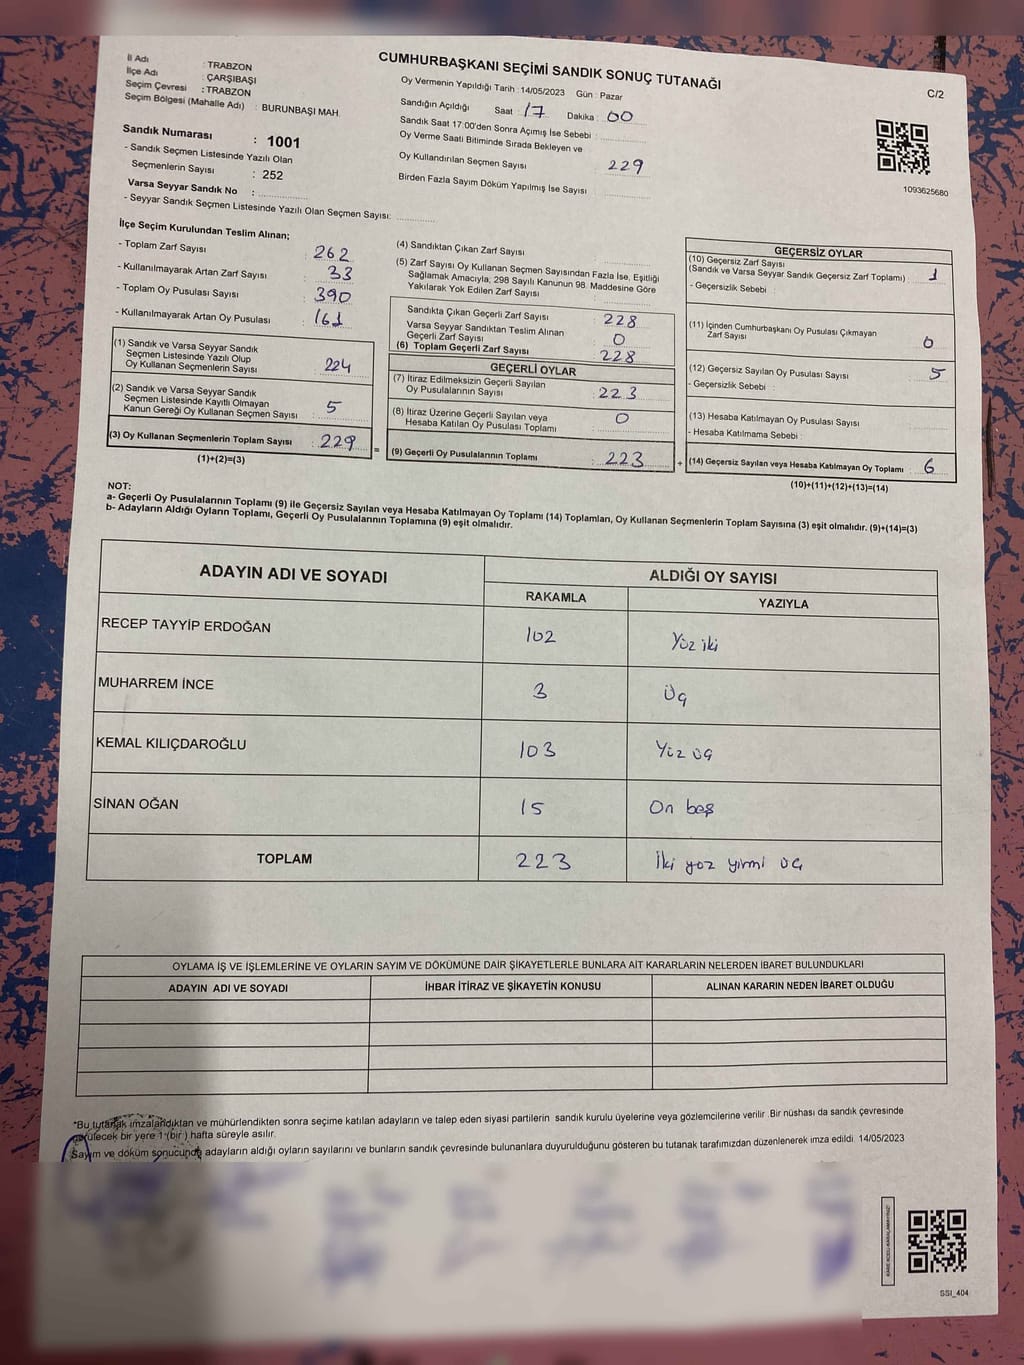 CUMHURBAŞKANI SEÇİMİ SANDIK SONUÇ TUTANAĞI
C/2
İl Adı : TRABZON
İlçe Adı : ÇARŞIBAŞI
Seçim Çevresi : TRABZON
Seçim Bölgesi (Mahalle Adı) : BURUNBAŞI MAH.
Sandık Numarası : 1001
- Sandık Seçmen Listesinde Yazılı Olan
Seçmenlerin Sayısı : 252
Varsa Seyyar Sandık No :
- Seyyar Sandık Seçmen Listesinde Yazılı Olan Seçmen Sayısı:
Oy Vermenin Yapıldığı Tarih : 14/05/2023 Gün : Pazar
Sandığın Açıldığı Saat : 17 Dakika : 00
Sandık Saat 17:00'den Sonra Açımış İse Sebebi :
Oy Verme Saati Bitiminde Sırada Bekleyen ve
Oy Kullandırılan Seçmen Sayısı : 229
Birden Fazla Sayım Döküm Yapılmış İse Sayısı :
1093625680
İlçe Seçim Kurulundan Teslim Alınan;
- Toplam Zarf Sayısı : 262
- Kullanılmayarak Artan Zarf Sayısı : 33
- Toplam Oy Pusulası Sayısı : 390
- Kullanılmayarak Artan Oy Pusulası : 161
(1) Sandık ve Varsa Seyyar Sandık
Seçmen Listesinde Yazılı Olup
Oy Kullanan Seçmenlerin Sayısı : 224
(2) Sandık ve Varsa Seyyar Sandık
Seçmen Listesinde Kayıtlı Olmayan
Kanun Gereği Oy Kullanan Seçmen Sayısı : 5
(3) Oy Kullanan Seçmenlerin Toplam Sayısı : 229
(1)+(2)=(3)
(4) Sandıktan Çıkan Zarf Sayısı :
(5) Zarf Sayısı Oy Kullanan Seçmen Sayısından Fazla İse, Eşitliği
Sağlamak Amacıyla, 298 Sayılı Kanunun 98. Maddesine Göre
Yakılarak Yok Edilen Zarf Sayısı :
Sandıkta Çıkan Geçerli Zarf Sayısı : 228
Varsa Seyyar Sandıktan Teslim Alınan
Geçerli Zarf Sayısı : 0
(6) Toplam Geçerli Zarf Sayısı : 228
GEÇERLİ OYLAR
(7) İtiraz Edilmeksizin Geçerli Sayılan
Oy Pusulalarının Sayısı : 223
(8) İtiraz Üzerine Geçerli Sayılan veya
Hesaba Katılan Oy Pusulası Toplamı : 0
= (9) Geçerli Oy Pusulalarının Toplamı : 223 +
GEÇERSİZ OYLAR
(10) Geçersiz Zarf Sayısı
(Sandık ve Varsa Seyyar Sandık Geçersiz Zarf Toplamı) : 1
- Geçersizlik Sebebi :
(11) İçinden Cumhurbaşkanı Oy Pusulası Çıkmayan
Zarf Sayısı : 0
(12) Geçersiz Sayılan Oy Pusulası Sayısı : 5
- Geçersizlik Sebebi :
(13) Hesaba Katılmayan Oy Pusulası Sayısı :
- Hesaba Katılmama Sebebi :
(14) Geçersiz Sayılan veya Hesaba Katılmayan Oy Toplamı : 6
(10)+(11)+(12)+(13)=(14)
NOT:
a- Geçerli Oy Pusulalarının Toplamı (9) ile Geçersiz Sayılan veya Hesaba Katılmayan Oy Toplamı (14) Toplamları, Oy Kullanan Seçmenlerin Toplam Sayısına (3) eşit olmalıdır. (9)+(14)=(3)
b- Adayların Aldığı Oyların Toplamı, Geçerli Oy Pusulalarının Toplamına (9) eşit olmalıdır.
ADAYIN ADI VE SOYADI ALDIĞI OY SAYISI
RAKAMLA YAZIYLA
RECEP TAYYİP ERDOĞAN 102 Yüz iki
MUHARREM İNCE 3 Üç
KEMAL KILIÇDAROĞLU 103 Yüz üç
SİNAN OĞAN 15 On beş
TOPLAM 223 İki yüz yirmi üç
OYLAMA İŞ VE İŞLEMLERİNE VE OYLARIN SAYIM VE DÖKÜMÜNE DAİR ŞİKAYETLERLE BUNLARA AİT KARARLARIN NELERDEN İBARET BULUNDUKLARI
ADAYIN ADI VE SOYADI İHBAR İTİRAZ VE ŞİKAYETİN KONUSU ALINAN KARARIN NEDEN İBARET OLDUĞU
*Bu tutanak imzalandıktan ve mühürlendikten sonra seçime katılan adayların ve talep eden siyasi partilerin sandık kurulu üyelerine veya gözlemcilerine verilir. Bir nüshası da sandık çevresinde
görülecek bir yere 1 (bir) hafta süreyle asılır.
Sayım ve döküm sonucunda adayların aldığı oyların sayılarını ve bunların sandık çevresinde bulunanlara duyurulduğunu gösteren bu tutanak tarafımızdan düzenlenerek imza edildi. 14/05/2023
SSI_404